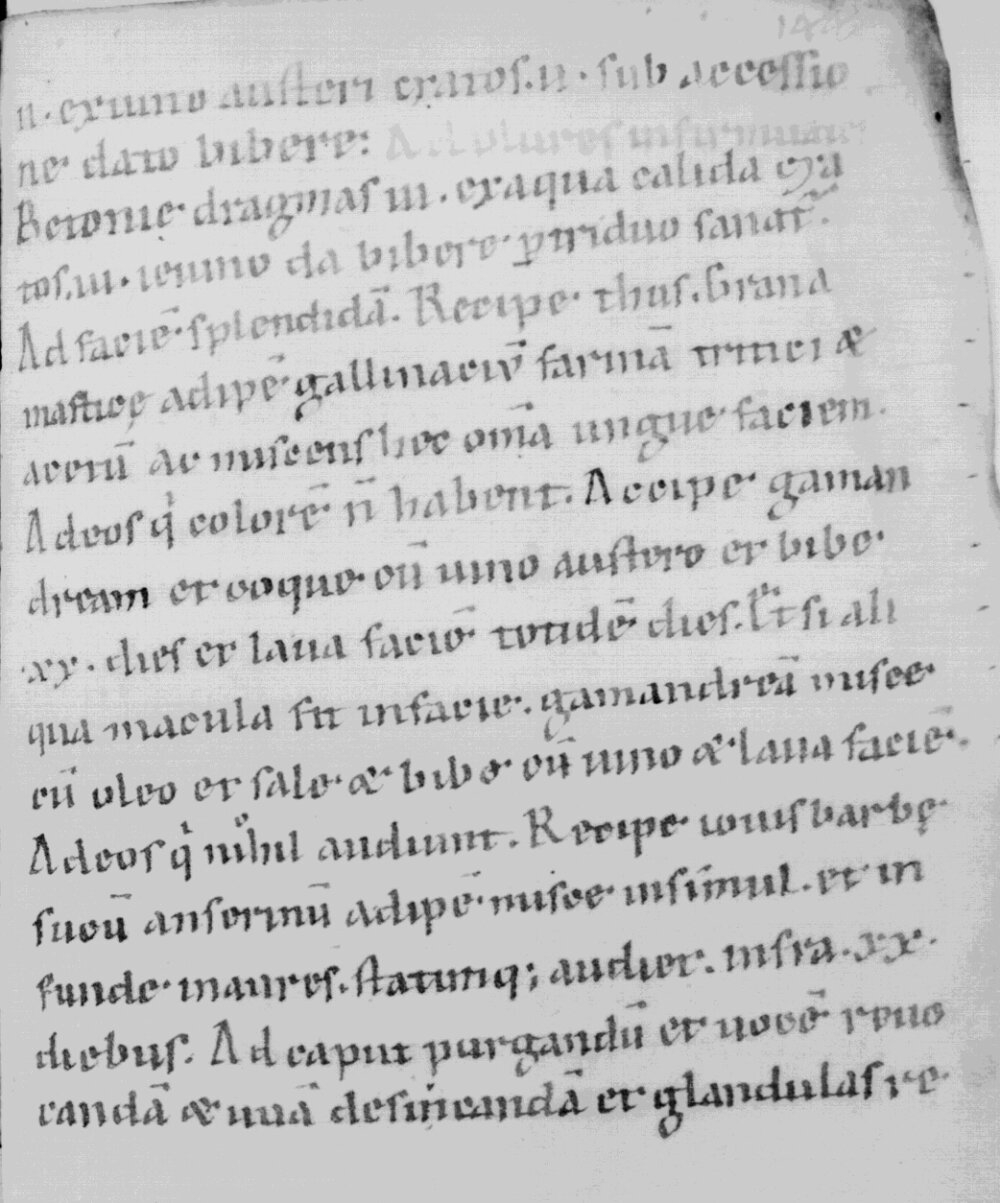 II. ex uino austeri cyatos. II. sub accessio
ne dato bibere: Ad dolores
Betonię dragmas III. ex aqua calida cya
tos. III. ieiuno da bibere p triduo sanat̄.
Ad faciē splendidā. Recipe thus. brana
masticę adipē gallinaciū farinā tritici æ
acetū ac miscens hec om̄a ungue faciem.
Ad eos q̇ colorē n̄ habent. Accipe gaman
dream et coque cū uino austero et bibe
xx. dies et laua faciē totidē dies. Et si ali
qua macula sit in facie. gamandreā misce
cū oleo et sale æ bibe cū uino æ laua faciē.
Ad eos q̇ nihil audiunt. Recipe iouis barbę
sucū anserinū adipē misce insimul. et in
funde in aures. statimq; audiet. infra. xx.
diebus. Ad caput purgandū et uocē reuo
candā æ uuā desiccandā et glandulas re